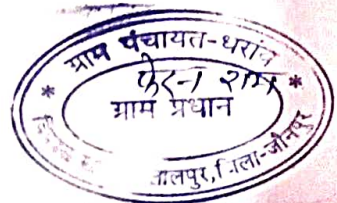 ग्राम पंचायत-धरांव
फेरन राम
ग्राम प्रधान
जालपुर, जिला-जौनपुर